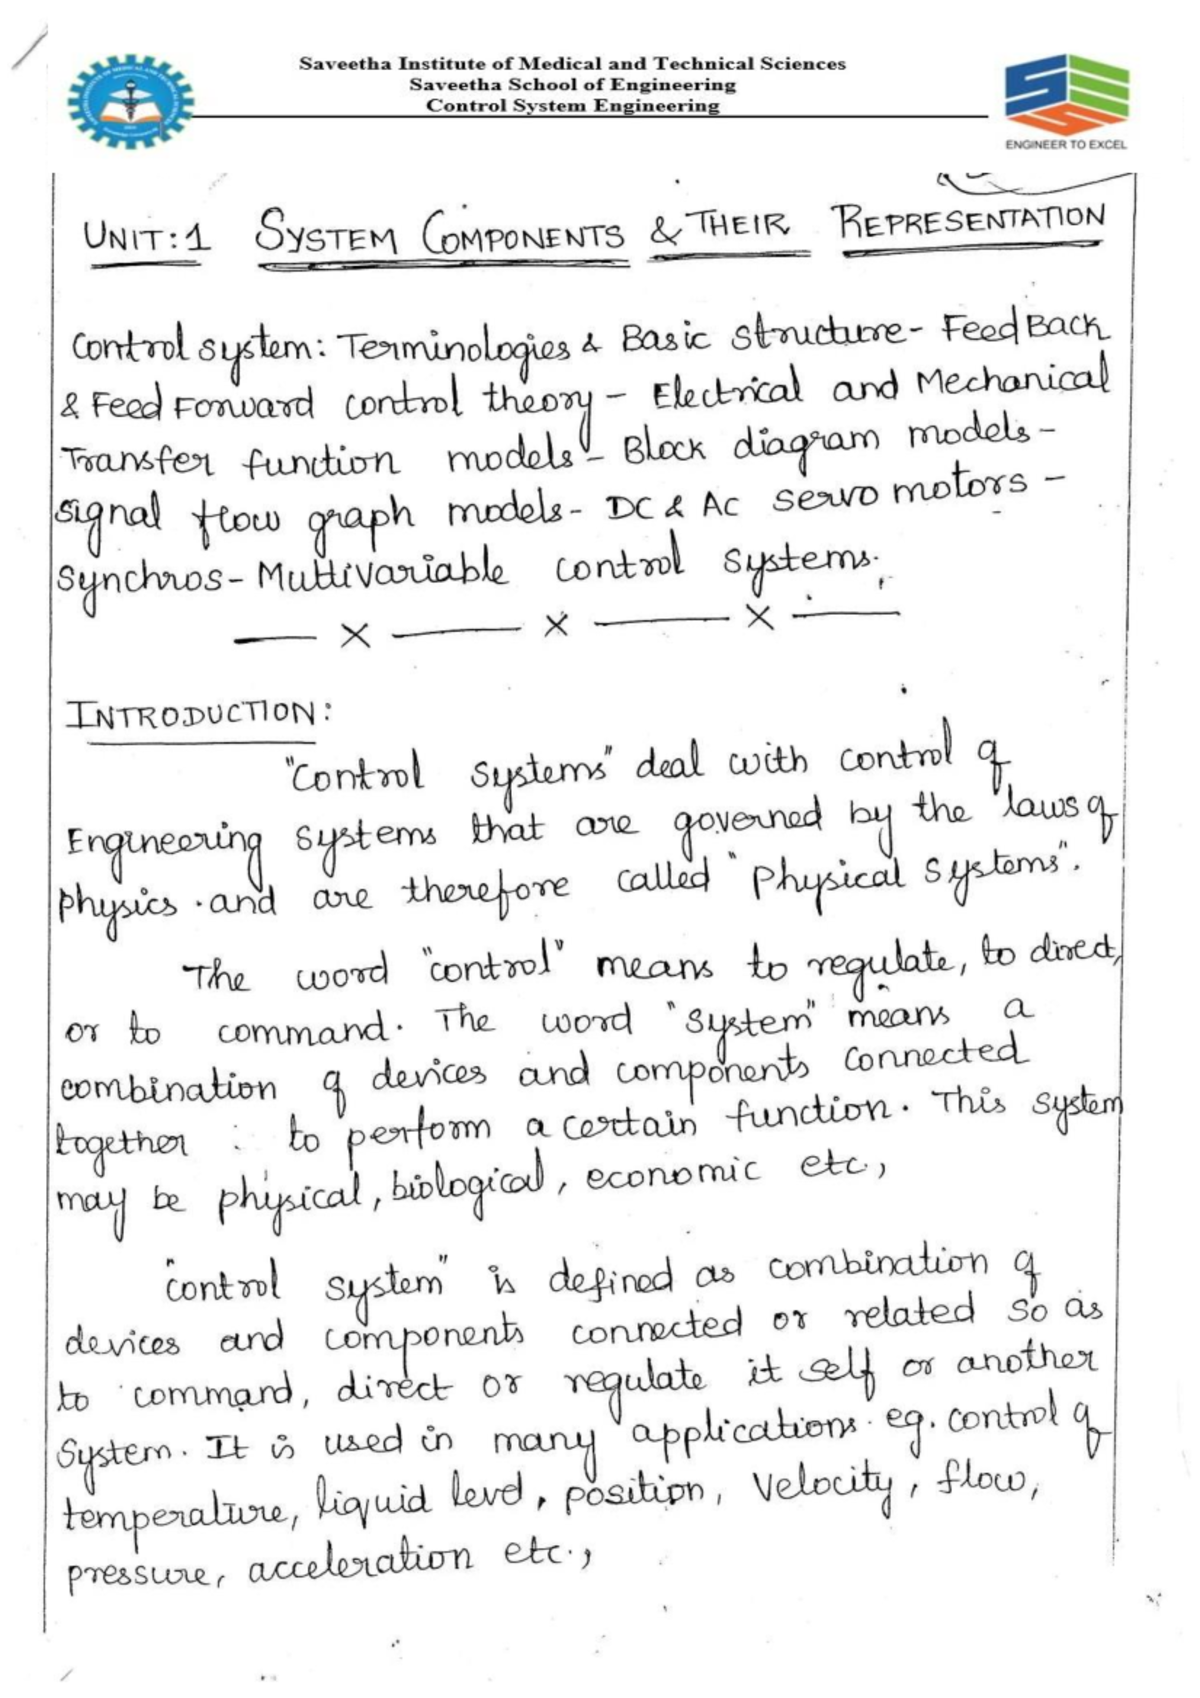 Saveetha Institute of Medical and Technical Sciences
Saveetha School of Engineering
Control System Engineering
ENGINEER TO EXCEL
UNIT:1 SYSTEM COMPONENTS & THEIR REPRESENTATION
Control system: Terminologies & Basic Structure- FeedBack
& Feed Forward control theory - Electrical and Mechanical
Transfer function models - Block diagram models -
signal flow graph models - DC & AC servo motors -
Synchros - Multivariable control systems.
— x — x — x —
INTRODUCTION:
"Control Systems" deal with control of
Engineering systems that are governed by the laws of
physics . and are therefore called "Physical Systems".
The word "control" means to regulate, to direct,
or to command. The word "System" means a
combination of devices and components connected
together to perform a certain function. This system
may be physical, biological, economic etc.,
"control system" is defined as combination of
devices and components connected or related so as
to command, direct or regulate it self or another
System. It is used in many applications. eg. control of
temperature, liquid level, position, velocity, flow,
pressure, acceleration etc.,